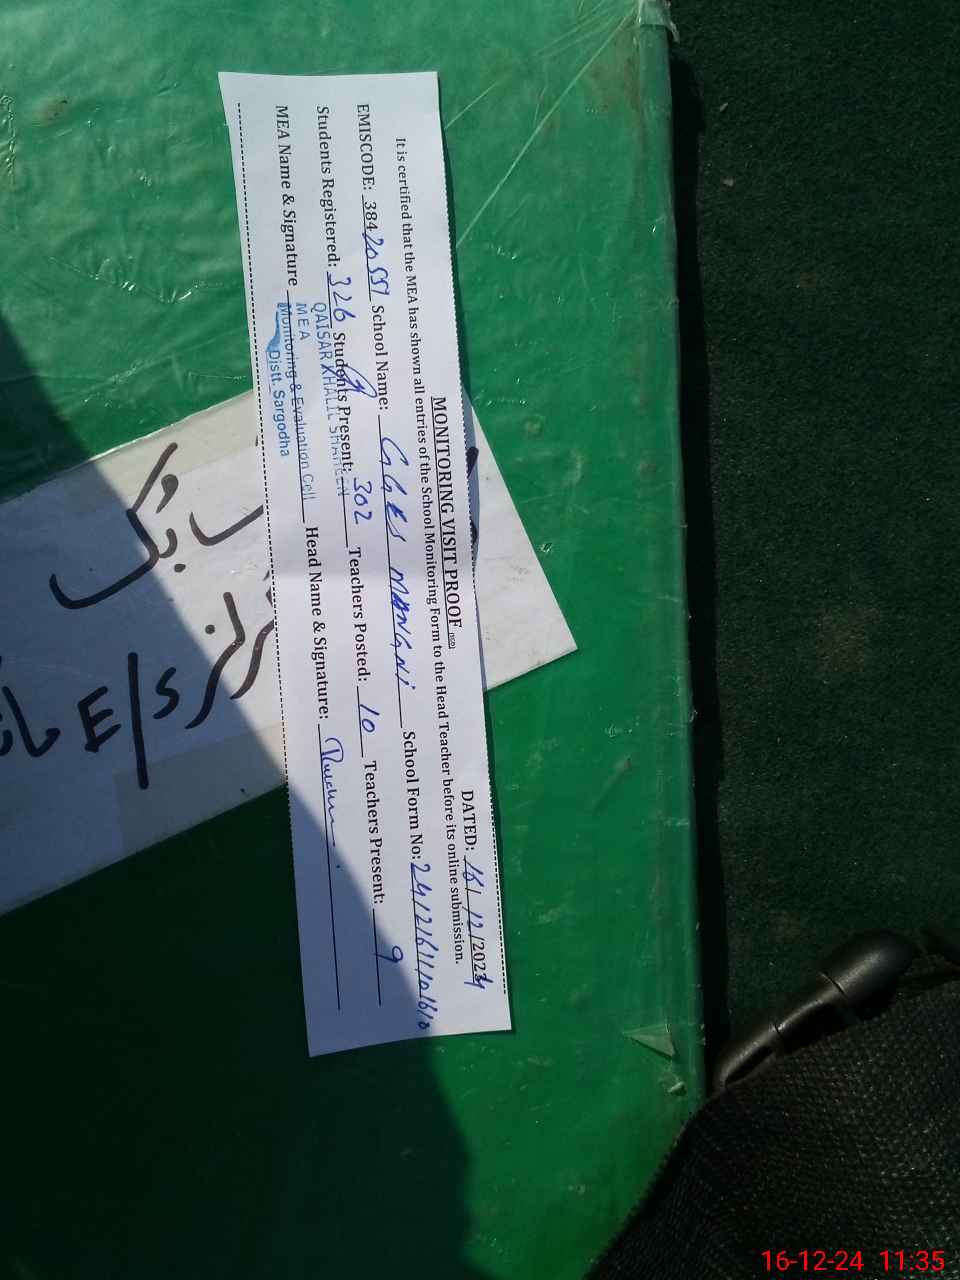 MONITORING VISIT PROOF (SGD)
DATED: 16/12/2024
It is certified that the MEA has shown all entries of the School Monitoring Form to the Head Teacher before its online submission.
EMISCODE: 384 School Name: GGES MANGNI School Form No:
Students Registered: 326 Students Present: 302 Teachers Posted: 10 Teachers Present: 9
QAISAR KHALIL SHAHEEN
MEA
MEA Name & Signature Monitoring & Evaluation Cell Head Name & Signature:
Distt. Sargodha
E/S
16-12-24 11:35